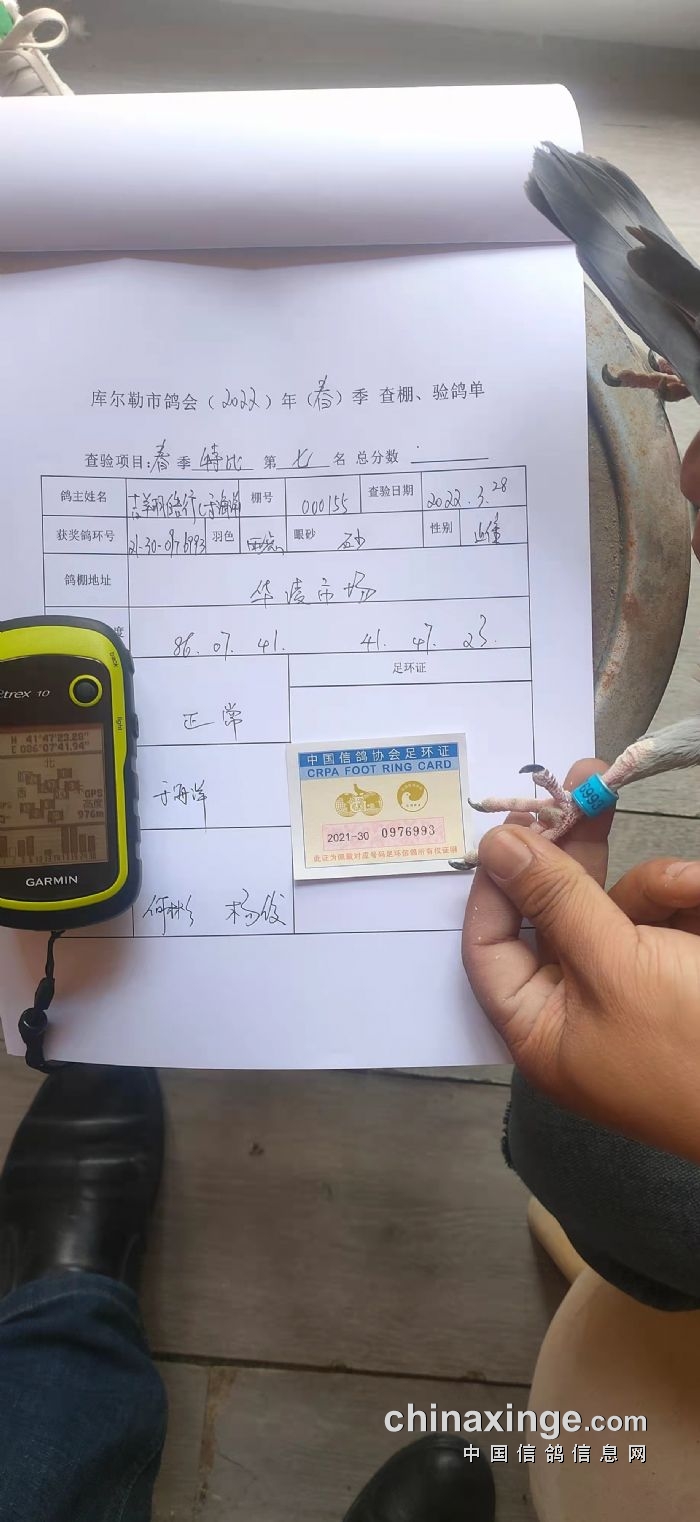 库尔勒市鸽会（2022）年（春）季 查棚、验鸽单
查验项目:春季 特比 第 七 名 总分数
鸽主姓名 棚号 000155 查验日期 2022.3.28
获奖鸽环号 21-30-0976993 羽色 眼砂 砂 性别 雄
鸽棚地址 华凌市场
度 86. 07. 41. 41. 47. 23.
足环证
正常
于海洋
何彬 杨俊
中国信鸽协会足环证
CRPA FOOT RING CARD
2021-30 0976993
此证为佩戴对应号码足环信鸽所有权证明
etrex 10
track
light
N 41°47'23.28"
E 086°07'41.94"
北
西
东
GPS
高度
976m
GARMIN
chinaxinge.com
中国信鸽信息网